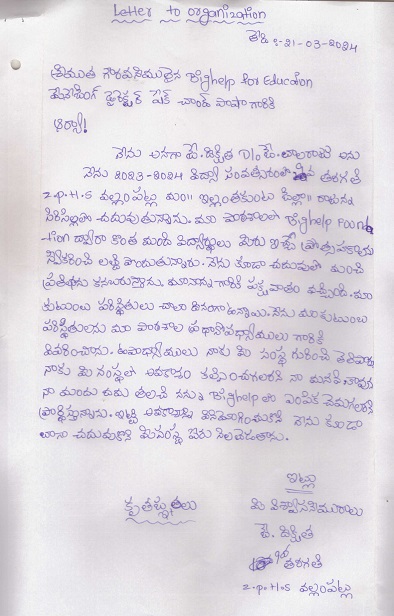 Letter to organization
తేది :-21-03-2024
శ్రీయుత గౌరవనీయులైన Bighelp for Education
మేనేజింగ్ డైరెక్టర్ షేక్ చాంద్ పాషా గారికి
నేను అనగా జే. దీక్షిత D/o జే. బాలరాజు అను
నేను 2023-2024 విద్యా సంవత్సరంలో తరగతి
Z.P.H.S వల్లంపట్ల మం॥ ఇల్లంతకుంట జిల్లా॥ రాజన్న
సిరిసిల్లలో చదువుతున్నాను. మా పాఠశాలలో Bighelp Founda
-tion ద్వారా కొంత మంది విద్యార్థులు మీరు ఇచ్చే ప్రోత్సాహకాన్ని
స్వీకరించి లబ్ధి పొందుతున్నారు. నేను కూడా చదువులో మంచి
ప్రతిభను కనబరుస్తాను. మా నాన్న గారికి పక్షవాతం వచ్చింది. మా
కుటుంబ పరిస్థితులు చాలా దీనంగా ఉన్నాయి. నేను మా కుటుంబ
పరిస్థితులను మా పాఠశాల ప్రధానోపాధ్యాయులు గారికి
వివరించాను. ఉపాధ్యాయులు నాకు మీ సంస్థ గురించి తెలిపారు
నాకు మీ సంస్థలో అవకాశం కల్పించగలరని నా మనవి
నా యందు దయ తలచి నన్ను Bighelp లో ఎంపిక చేయగలరని
ప్రార్థిస్తున్నాను. ఇట్టి అవకాశాన్ని వినియోగించుకొని నేను కూడా
బాగా చదువుకొని మీ సంస్థ పేరు నిలబెడతాను.
ఇట్లు
కృతజ్ఞతలు
మీ విశ్వాసనీయురాలు
జే. దీక్షిత
తరగతి
Z.P.H.S వల్లంపట్ల